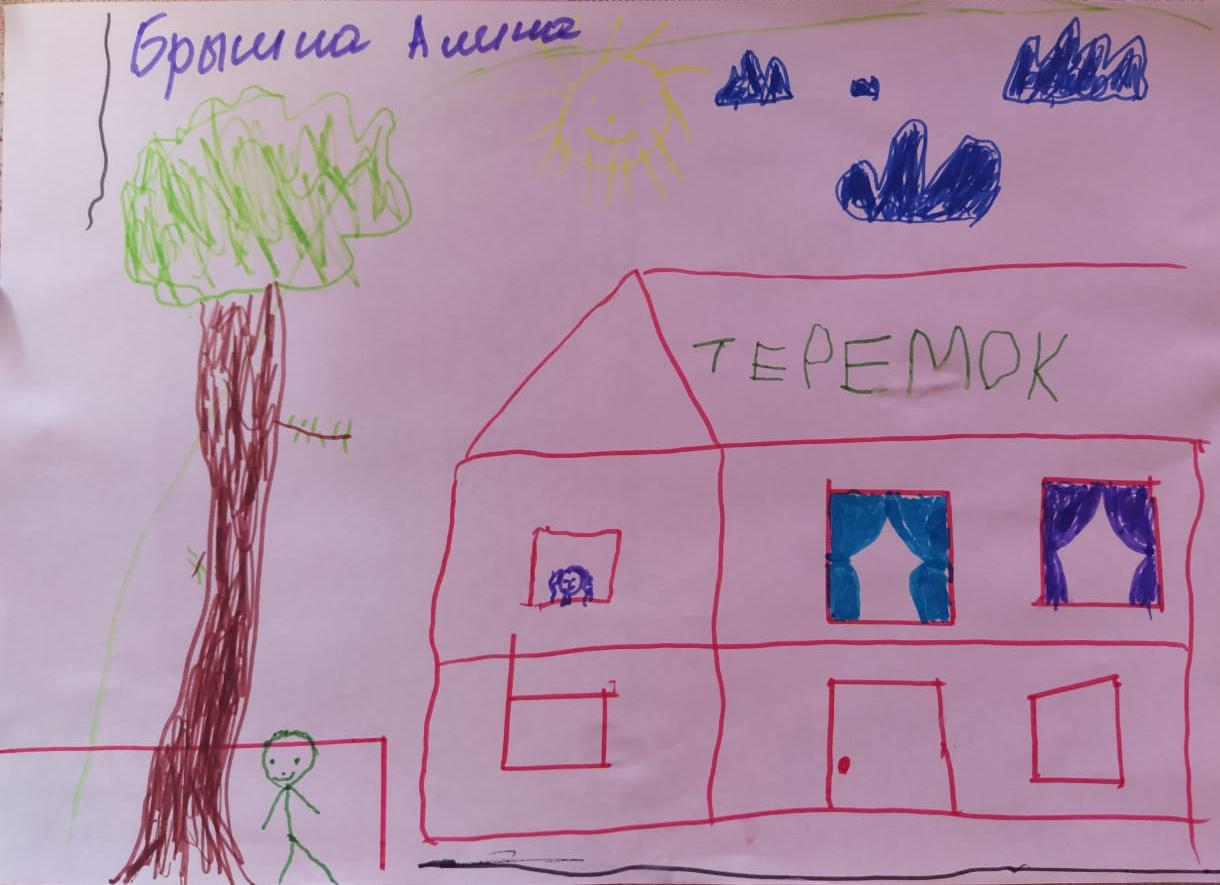 Брышна Алина
ТЕРЕМОК